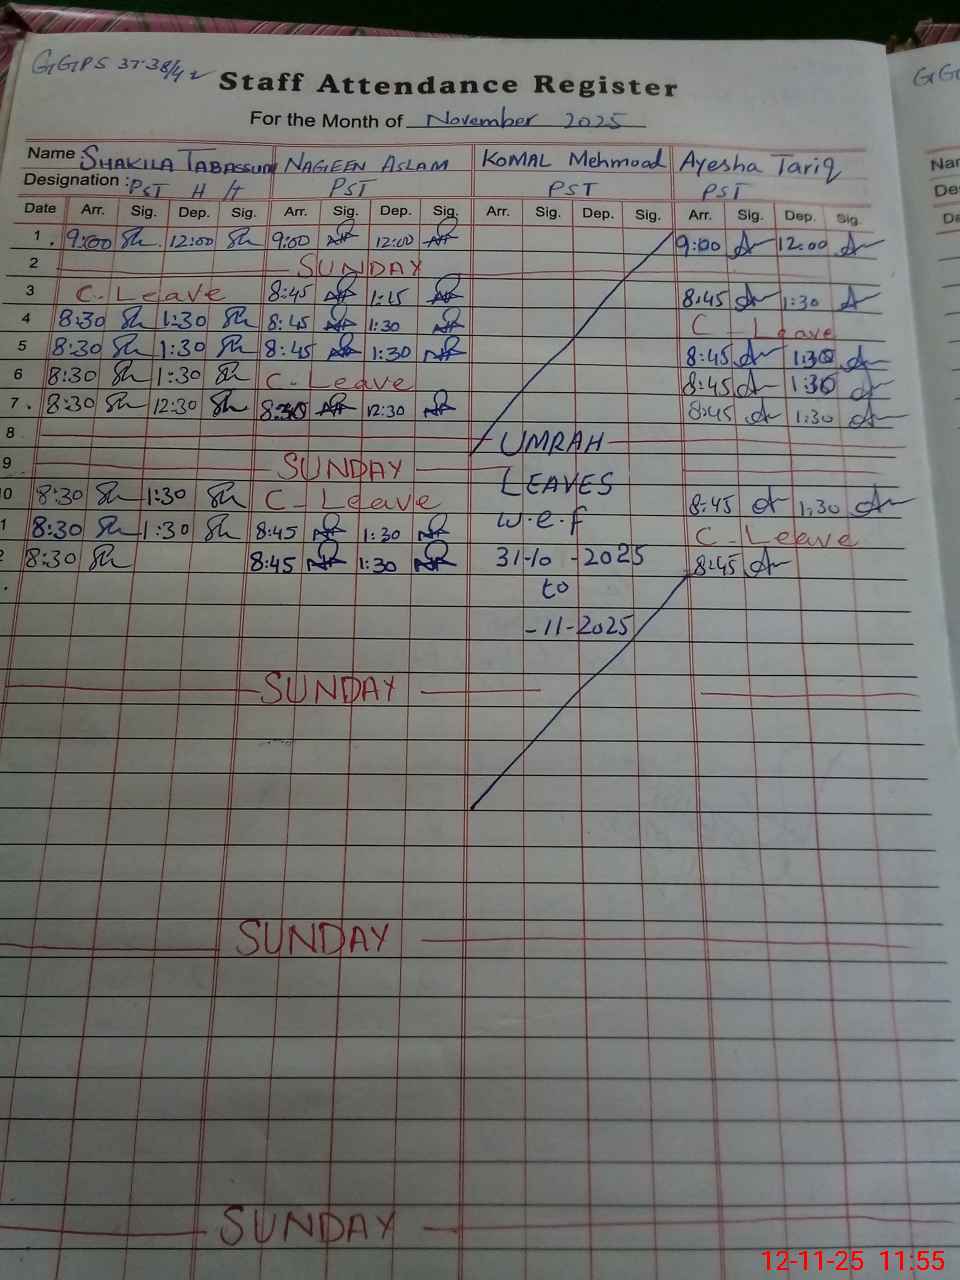 GGPS 37-38/4 L
Staff Attendance Register
For the Month of November 2025
Name : SHAKILA TABASSUM NAGEEN ASLAM KOMAL Mehmood Ayesha Tariq
Designation : PST H /t PST PST PST
Date Arr. Sig. Dep. Sig. Arr. Sig. Dep. Sig. Arr. Sig. Dep. Sig. Arr. Sig. Dep. Sig.
1 . 9:00 Sh 12:00 Sh 9:00 12:00 9:00 12:00
2 SUNDAY
3 C. Leave 8:45 1:15 8:45 1:30
4 8:30 Sh 1:30 Sh 8:45 1:30 C - Leave
5 8:30 Sh 1:30 Sh 8:45 1:30 8:45 1:30
6 8:30 Sh 1:30 Sh C - Leave 8:45 1:30
7 . 8:30 Sh 12:30 Sh 8:30 12:30 8:45 1:30
8 UMRAH
9 SUNDAY LEAVES
0 8:30 Sh 1:30 Sh C - Leave 8:45 1:30
1 8:30 Sh 1:30 Sh 8:45 1:30 w.e.f C - Leave
2 8:30 Sh 8:45 1:30 31-10-2025 8:45
to
-11-2025
SUNDAY
SUNDAY
SUNDAY
GG
Nar
De
Da
12-11-25 11:55